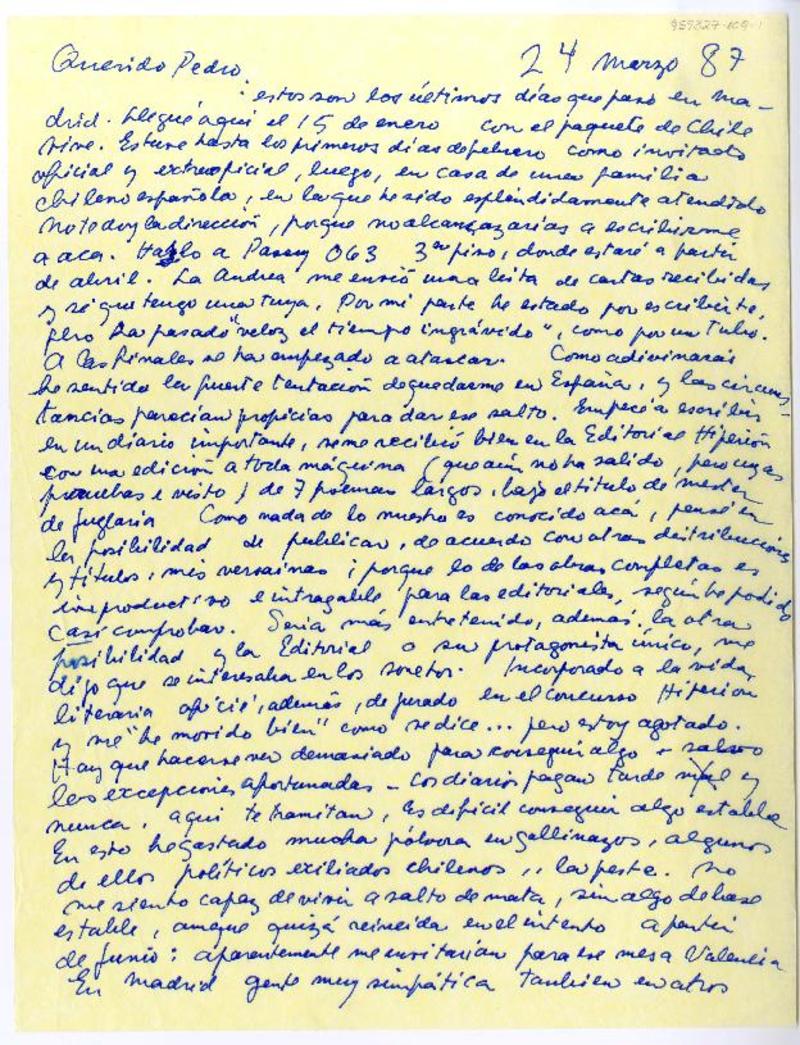 959827-109-1
Querido Pedro 24 marzo 87
: estos son los últimos días que paso en Ma-
drid. Llegué aquí el 15 de enero con el paquete de Chile
vive. Estuve hasta los primeros días de febrero como invitado
oficial y extraoficial, luego, en casa de una familia
chileno española, en la que he sido espléndidamente atendido
No te doy la dirección, porque no alcanzarías a escribirme
a aca. Hazlo a Passy 063 3er piso, donde estaré a partir
de abril. La Andrea me envió una lista de cartas recibidas
y sé que tengo una tuya. Por mi parte he estado por escribirte,
pero ha pasado "veloz el tiempo ingrávido", como por un tubo.
A las finales se ha empezado a atascar. Como adivinarás
he sentido la fuerte tentación de quedarme en España, y las circuns-
tancias parecían propicias para dar ese salto. Empecé a escribir
en un diario importante, se me recibió bien en la Editorial Hiperión
con una edición a toda máquina (que aún no ha salido, pero cuyas
pruebas e visto) de 7 poemas largos, bajo el título de mester
de juglaría Como nada de lo nuestro es conocido acá, pensé en
la posibilidad de publicar, de acuerdo con otras distribuciones
y títulos, mis versainas; porque lo de las obras completas es
improductivo e intragable para las editoriales, según he podido
casi comprobar. Seria más entretenido, además, la otra
posibilidad y la Editorial o su protagonista único, me
dijo que se interesaba en los sonetos. Incorporado a la vida
literaria oficié, además, de jurado en el concurso Hiperion
y me "he movido bien" como se dice... pero estoy agotado.
Hay que hacerse ver demasiado para conseguir algo - salvo
las excepciones afortunadas - Los diarios pagan tarde y
nunca. Aquí te tramitan, Es difícil conseguir algo estable
En esto he gastado mucha pólvora en gallinazos, algunos
de ellos políticos exiliados chilenos,, la peste. No
me siento capaz de vivir a salto de mata, sin algo de base
estable, aunque quizá reincida en el intento a partir
de junio: aparentemente me invitarían para ese mes a Valencia
En Madrid gente muy simpática también en otros